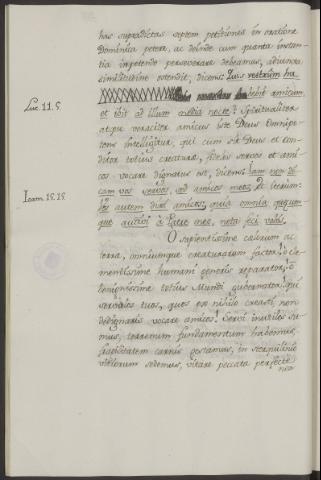 has supradictas septem petitiones in oratione
Dominica petere, ac deinde cum quanta instan-
tia impetendo perseverare debeamus, adjuncta
similitudine ostendit, dicens: Quis vestrum ha
Luc. 11. 5.
bebit amicum
et ibit ad illum media nocte? Spiritualiter
atque veraciter amicus iste Deus Omnipo-
tens intelligitur, qui cum sit Deus et con-
ditor totius creaturæ, Deus servos et ami-
cos vocare dignatus est, dicens: Jam non di-
Joan. 15. 15.
cam vos servos, sed amicos meos. Et iterum:
Vos autem dixi amicos, quia omnia quæcum-
que audivi à Patre meo, nota feci vobis.
O sapientissime cælorum ac
terræ, omniumque creaturarum factor! ô cle-
mentissime humani generis reparator! ô
benignissime totius Mundi gubernator! qui
servulos tuos, quos ex nihilo creasti non
dedignaris vocare amicos! Servi inutiles su-
mus, terrenum fundamentum habemus,
fragilitatem carnis gestamus, in sterquilinio
vitiorum sedemus, vitare peccata perfectè